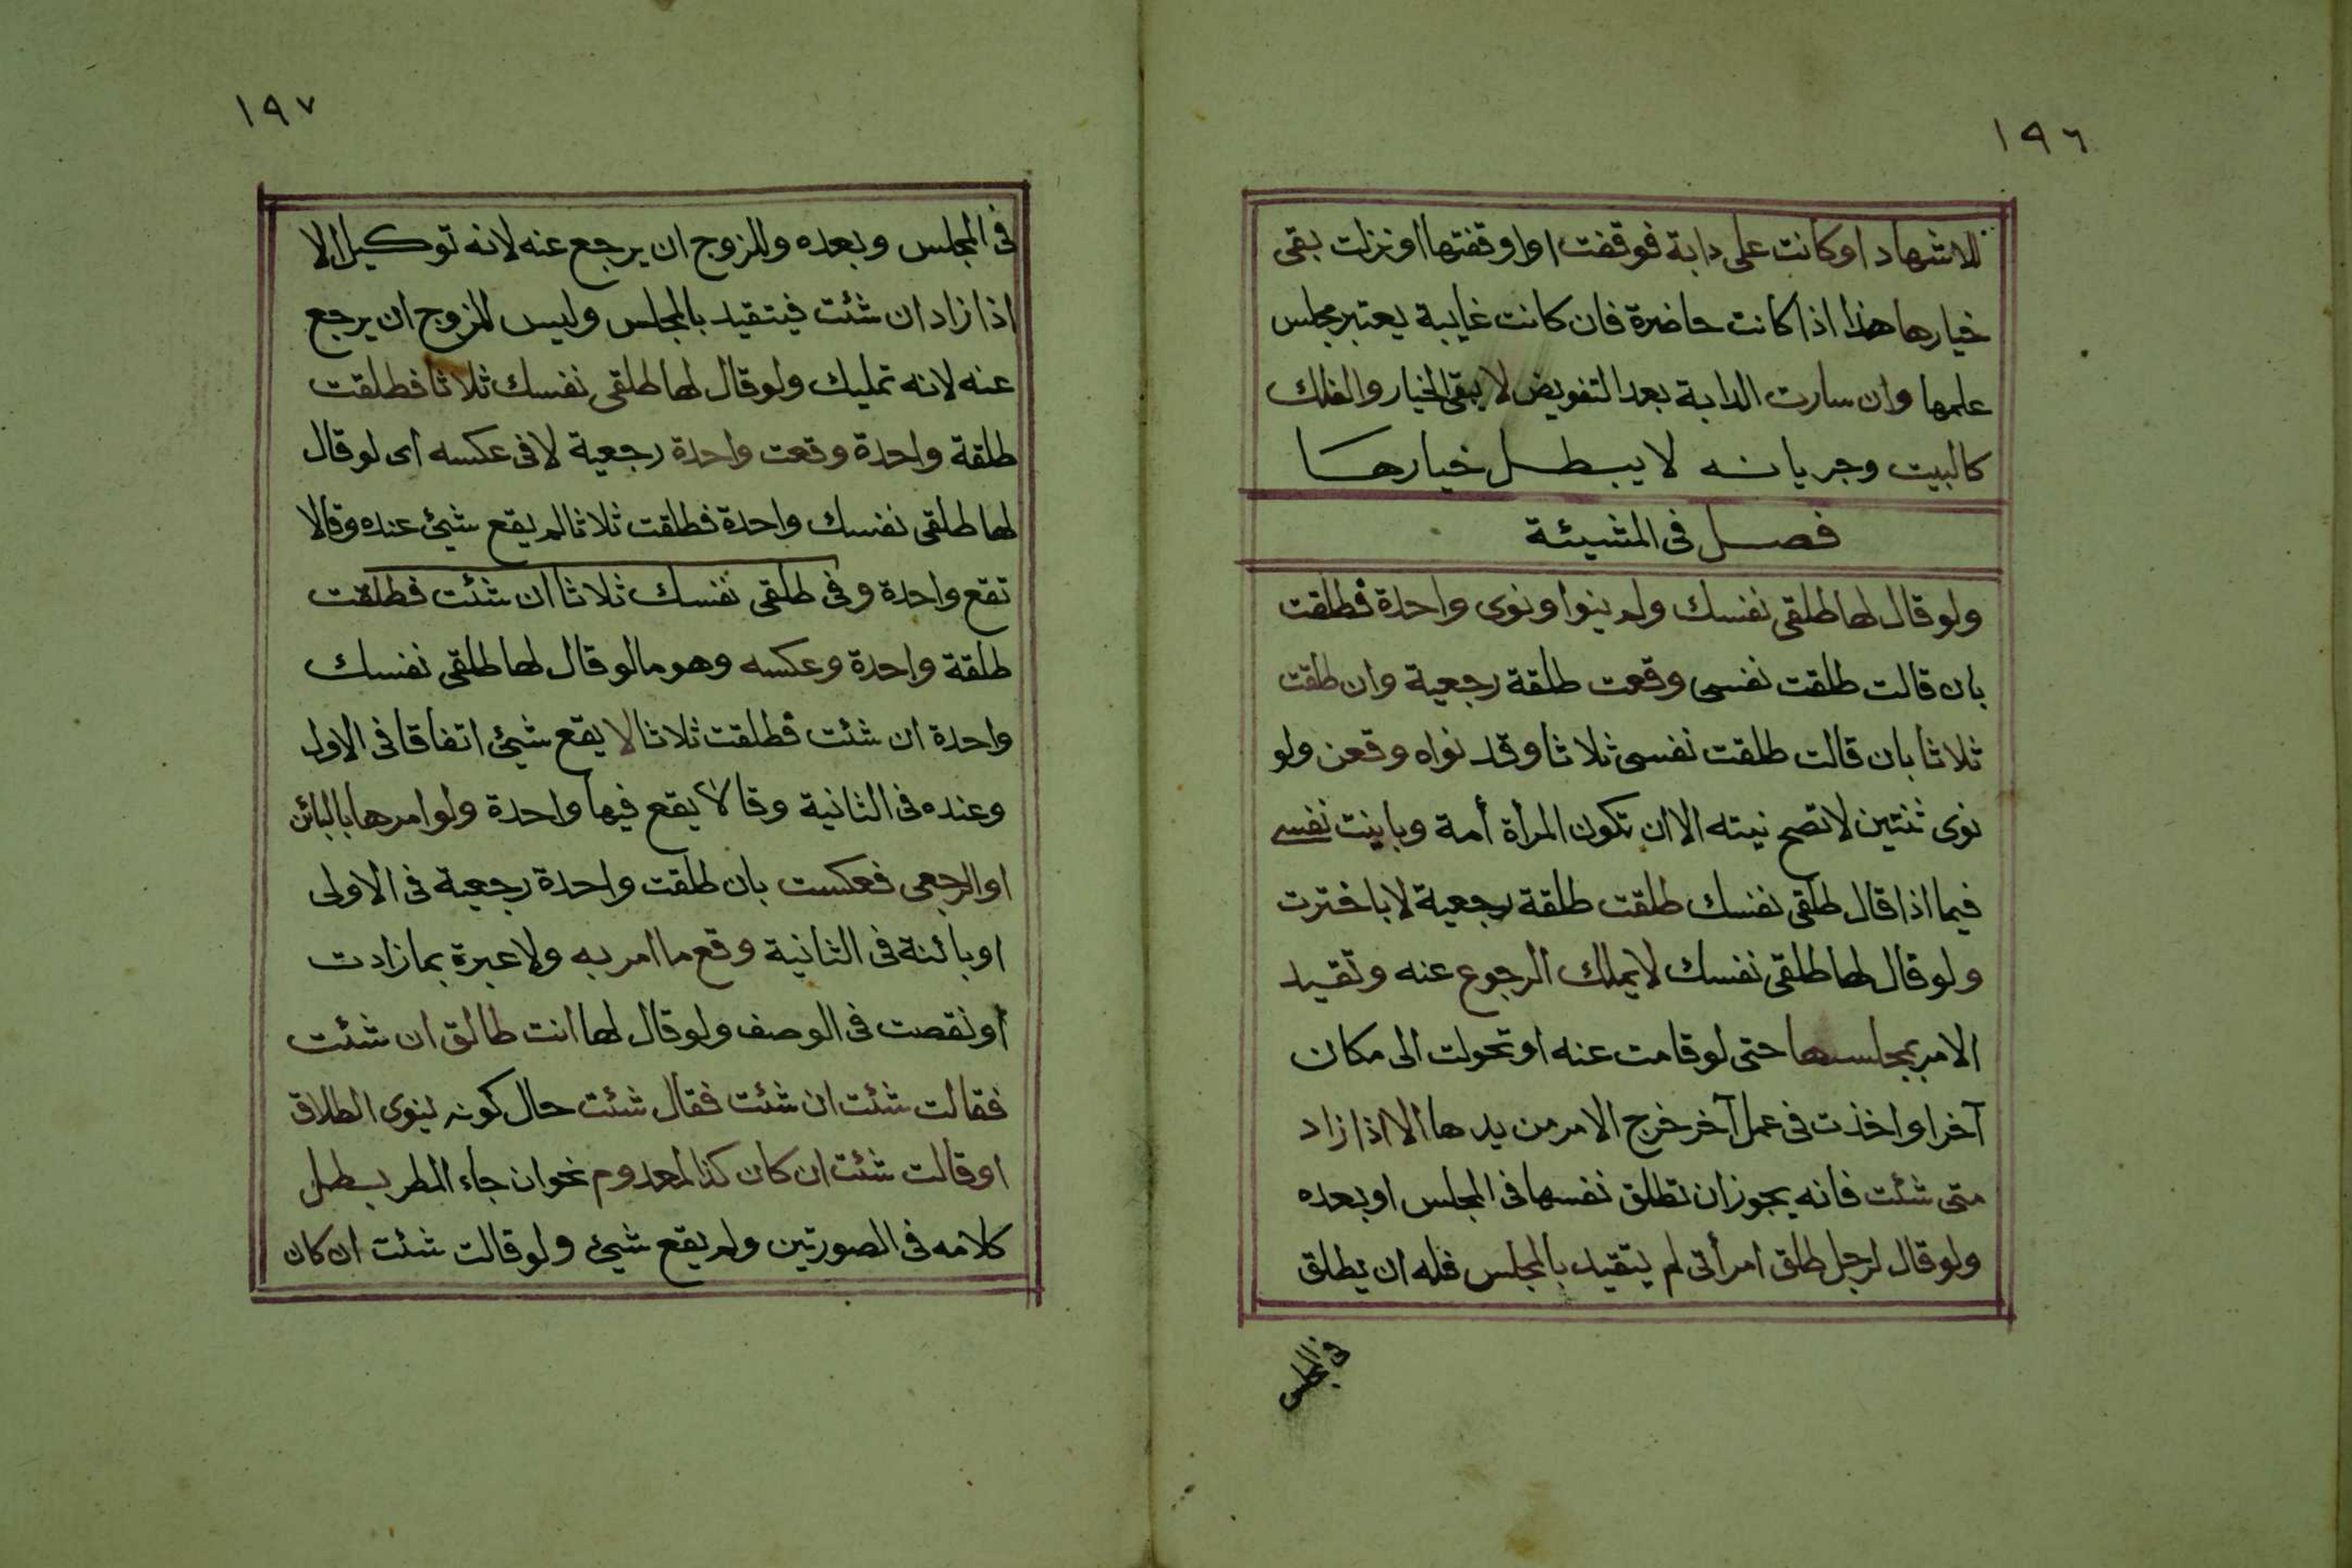 ١٩٦
للاشهاد او كانت على دابة فوقفت او اوقفتها او نزلت بقى
خيارها هذا اذا كانت حاضرة فان كانت غايبة يعتبر مجلس
علمها وان سارت الدابة بعد التفويض لا يبقى الخيار والفلك
كالبيت وجريانه لا يبطل خيارها
فصل فى المشيئة
ولو قال لها طلقى نفسك ولم ينوا ونوى واحدة فطلقت
بان قالت طلقت نفسى وقعت طلقة رجعية وان طلقت
ثلاثا بان قالت طلقت نفسى ثلاثا وقد نواه وقعن ولو
نوى ثنتين لا تصح نيته الا ان تكون المرأة أمة وباينت نفسى
فيما اذا قال طلقى نفسك طلقت طلقة رجعية لا باخترت
ولو قال لها طلقى نفسك لا يملك الرجوع عنه وتقيد
الامر بمجلسها حتى لو قامت عنه او تحولت الى مكان
آخر او اخذت فى عمل آخر خرج الامر من يدها الا اذا زاد
متى شئت فانه يجوز ان تطلق نفسها فى المجلس او بعده
ولو قال لرجل طلق امرأتى لم يتقيد بالمجلس فله ان يطلق
فى المجلس
١٩٧
فى المجلس وبعده وللزوج ان يرجع عنه لانه توكيل الا
اذا زاد ان شئت فيتقيد بالمجلس وليس للزوج ان يرجع
عنه لانه تمليك ولو قال لها طلقى نفسك ثلاثا فطلقت
طلقة واحدة وقعت واحدة رجعية لا فى عكسه اى لو قال
لها طلقى نفسك واحدة فطلقت ثلاثا لم يقع شيئ عنده وقالا
تقع واحدة وفى طلقى نفسك ثلاثا ان شئت فطلقت
طلقة واحدة وعكسه وهو ما لو قال لها طلقى نفسك
واحدة ان شئت فطلقت ثلاثا لا يقع شيئ اتفاقا فى الاولى
وعنده فى الثانية وقالا يقع فيها واحدة ولو امرها بالبائن
او الرجعى فعكست بان طلقت واحدة رجعية فى الاولى
او بائنة فى الثانية وقع ما امر به ولا عبرة بما زادت
او نقصت فى الوصف ولو قال لها انت طالق ان شئت
فقالت شئت ان شئت فقال شئت حال كونه ينوى الطلاق
او قالت شئت ان كان كذا لمعدوم نحو ان جاء المطر يبطل
كلامه فى الصورتين ولم يقع شيئ ولو قالت شئت ان كان